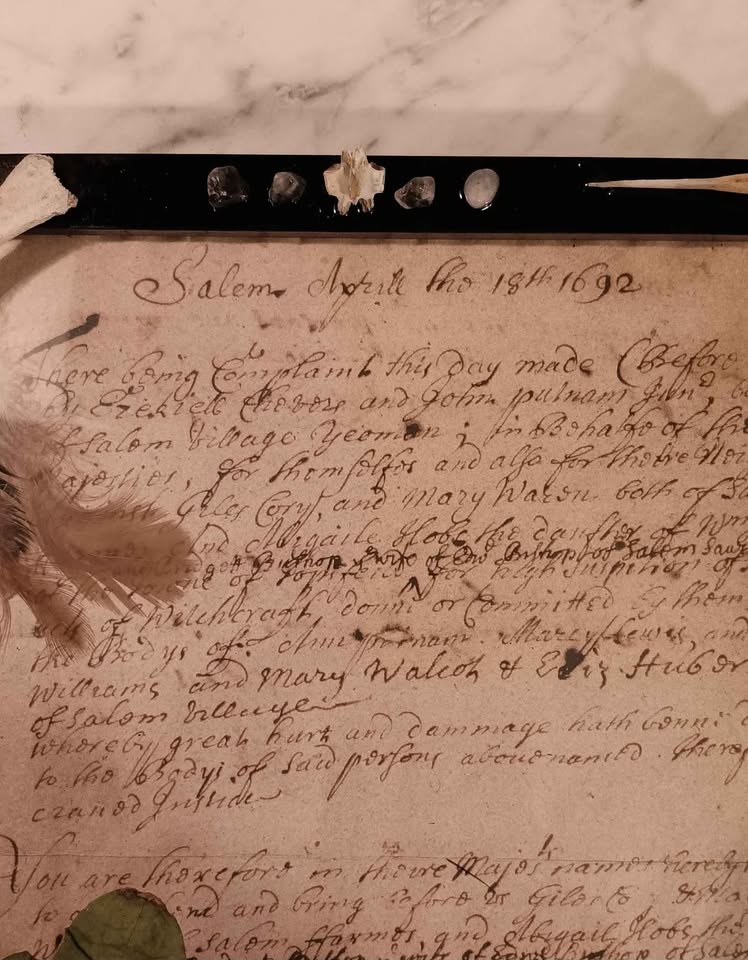 Salem Aprill the 18th 1692
There being Complaint this day made (Before
by Ezekiell Chevers and John putnam Junr,
of Salem Village Yeomen ; in Behalfe of the
Majesties, for themselfes and also for theire
Giles Cory, and Mary Waren both of
And Abigaile Hobs the daughter of Wm
Bridget Bushop wife of Edw Bishop of Salem
of Topsfeild for high Suspition of
of Witchcraft donne or Committed by them
the Bodys of: Ann putnam. Marcy Lewis, and
Williams and Mary Walcot & Eliz Huber
of Salem Village
whereby great hurt and dammage hath benne
to the Bodys of Said persons abovenamed. there
craved Justice
You are therefore in theire Majesties names hereby
to and bring before us Giles
Salem ffarmes and Abigail Hobs the
wife of Edw Bushop of